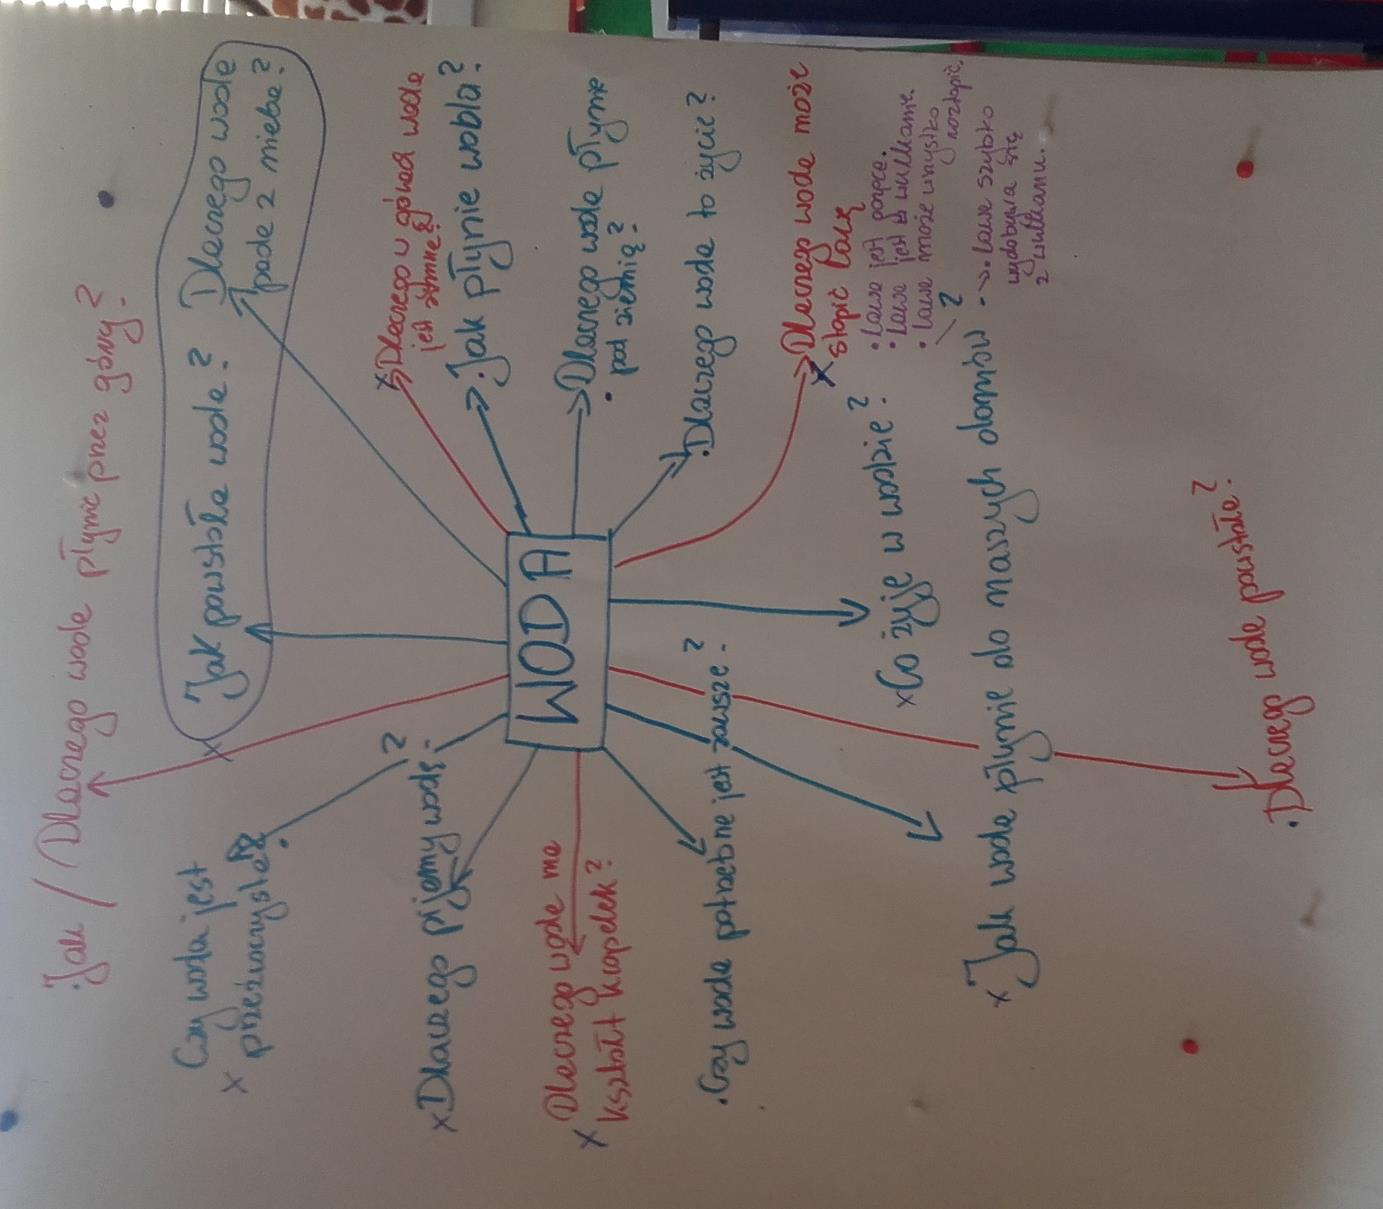 • Jak / Dlaczego woda płynie przez góry?
Jak powstała woda?
Dlaczego woda
pada z nieba?
x Dlaczego w górach woda
jest zimna?
• Jak płynie woda?
• Dlaczego woda płynie
pod ziemią?
• Dlaczego woda to życie?
x Dlaczego woda może
stopić lawę
?
• lawa jest gorąca.
• lawa jest w wulkanie.
• lawa może wszystko
roztopić.
→ • lawa szybko
wydobywa się
z wulkanu.
WODA
x Czy woda jest
przezroczysta?
x Dlaczego pijemy wodę?
x Dlaczego woda ma
kształt kropelek?
• Czy woda potrzebne jest zawsze?
x Co żyje w wodzie?
x Jak woda płynie do naszych domów?
• Dlaczego woda powstała?